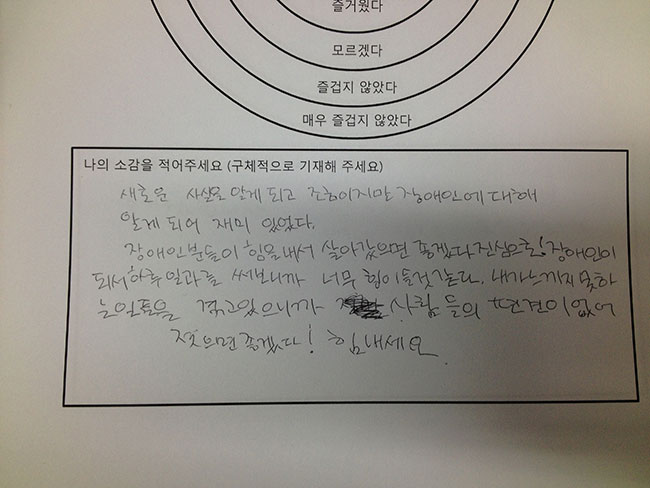 즐거웠다
모르겠다
즐겁지 않았다
매우 즐겁지 않았다
나의 소감을 적어주세요 (구체적으로 기재해 주세요)
새로운 사실도 알게 되고 조금이지만 장애인에 대해
알게 되어 재미 있었다.
장애인분들이 힘을내서 살아갔으면 좋겠다 진심으로! 장애인이
되서 하루 일과를 써보니까 너무 힘이들것같다. 내가느끼지 못하
는일들을 겪고있으니까 사람들의 편견이 없어
졋으면 좋겠다! 힘내세요